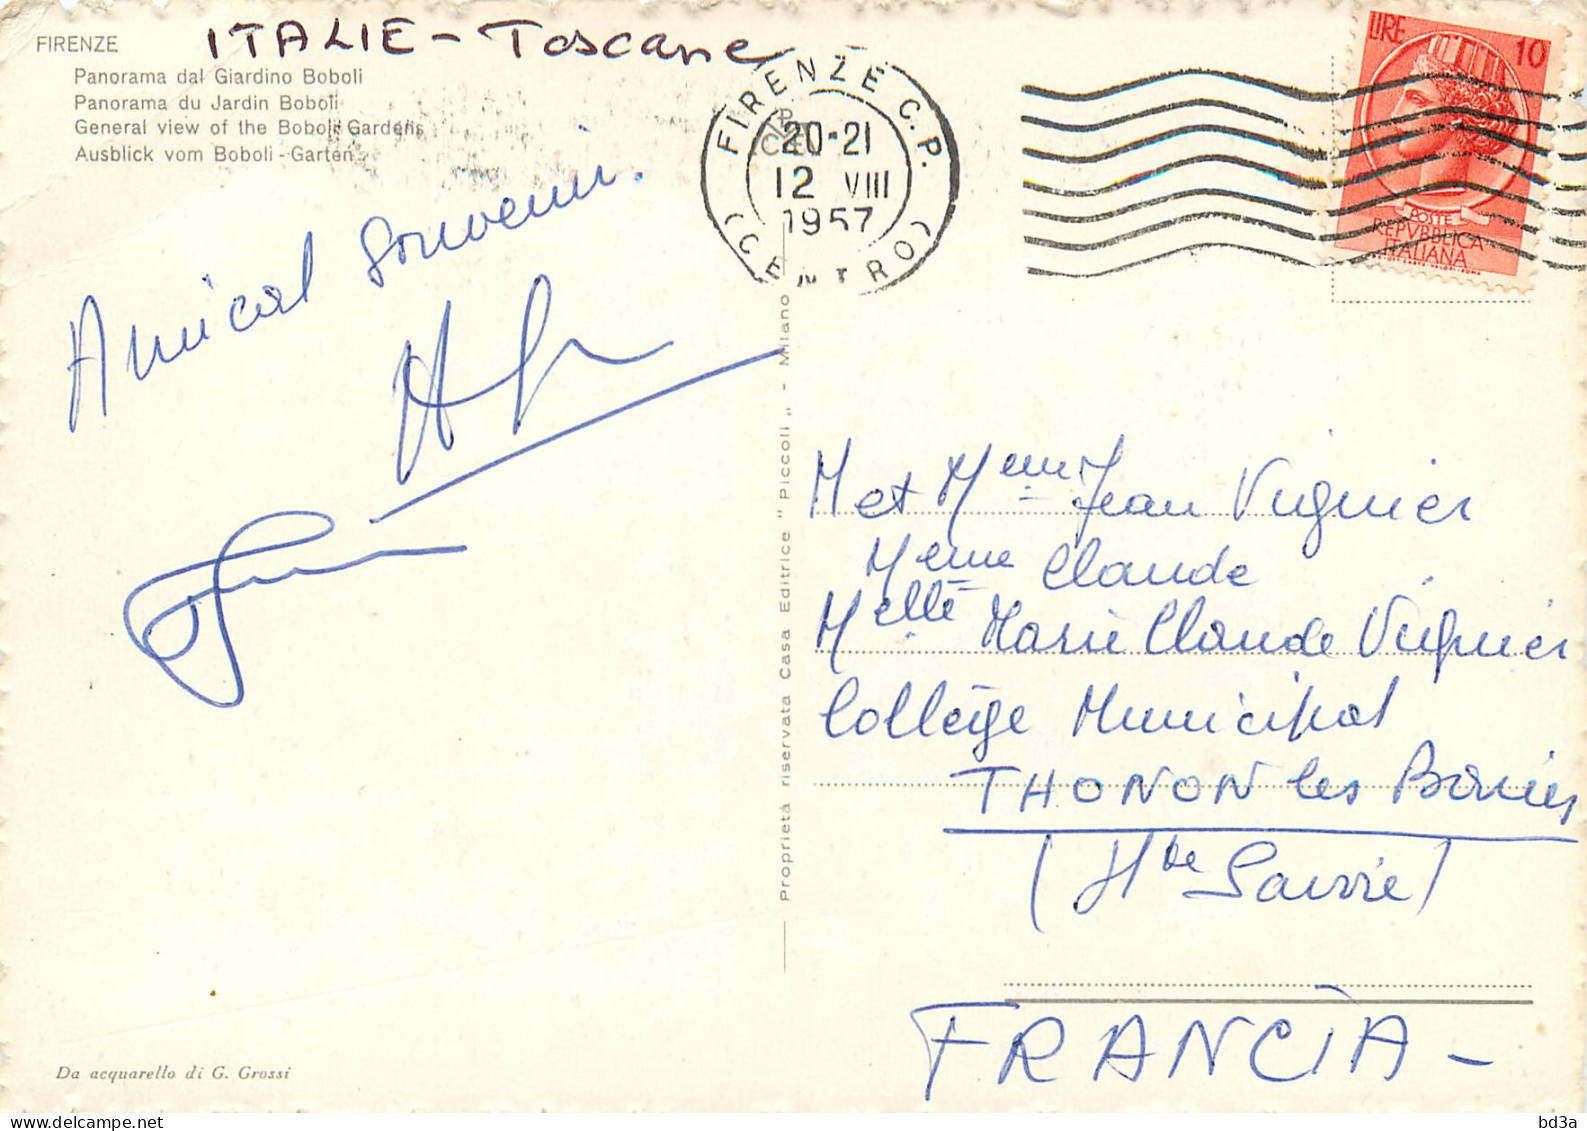 ITALIE - Toscane
FIRENZE
Panorama dal Giardino Boboli
Panorama du Jardin Boboli
General view of the Boboli Gardens
Ausblick vom Boboli - Garten
FIRENZE C.P.
20-21
12 VIII
1957
(CENTRO)
LIRE 10
POSTE
REPVBBLICA
ITALIANA
Amical souvenir.
M et Meme Jean Viguier
Meme Claude
Melle Marie Claude Viguier
Collège Municipal
THONON les Bains
(Hte Savoie)
FRANCIA -
Proprietà riservata Casa Editrice " Piccoli „ - Milano
Da acquarello di G. Grossi
delcampe.net
bd3a